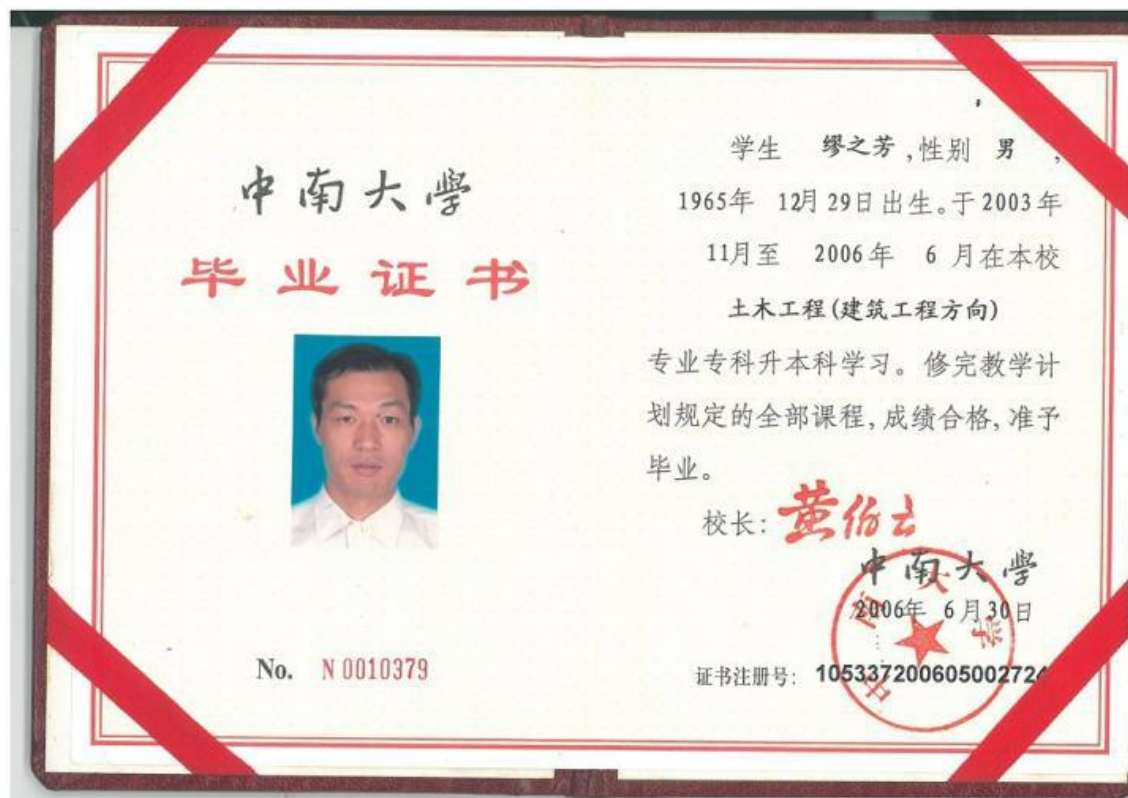 中南大學
毕业证书
No. N 0010379
学生 缪之芳,性别 男 ,
1965年 12月 29日出生。于2003年
11月至 2006年 6 月在本校
土木工程(建筑工程方向)
专业专科升本科学习。修完教学计
划规定的全部课程,成绩合格,准予
毕业。
校长: 黄伯云
中南大學
2006年 6月30日
中南大学
证书注册号: 105337200605002724